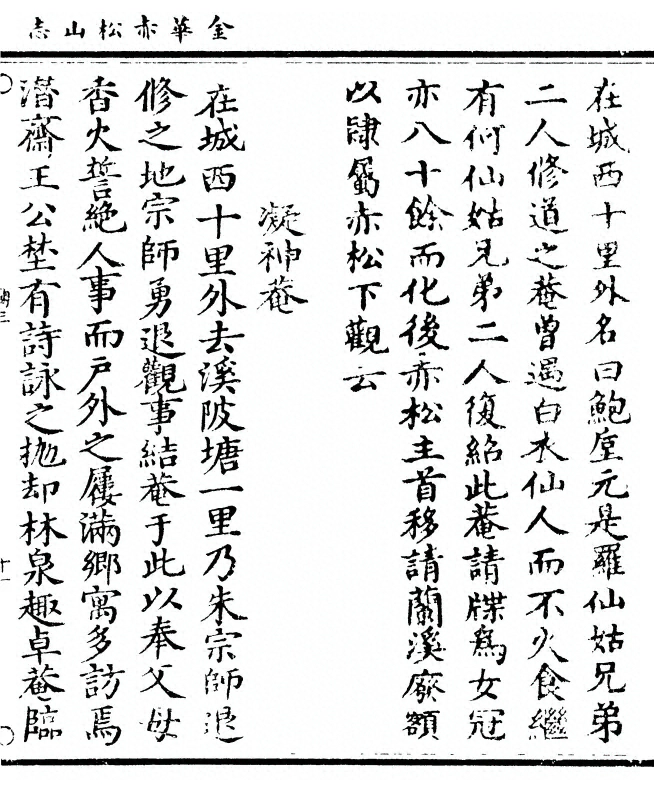 金華赤松山志
在城西十里外名曰鮑壟元是羅仙姑兄弟
二人修道之菴曾遇白衣仙人而不火食繼
有何仙姑兄弟二人復紹此菴請牒爲女冠
亦八十餘而化後赤松主首移請蘭溪廢額
以隷屬赤松下觀云
凝神菴
在城西十里外去溪陂塘一里乃朱宗師退
修之地宗師勇退觀事結菴于此以奉父母
香火誓絶人事而戸外之屨滿鄉寓多訪焉
潛齋王公埜有詩詠之抛却林泉趣卓菴臨
十一